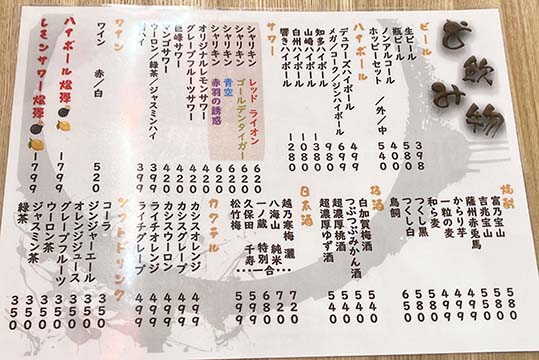 お飲み物
ビール
生ビール 398
瓶ビール 580
ノンアルコール
ホッピーセット /外/中
ハイボール
デュワーズハイボール 499
メガ/コーク/ジンハイボール 699
知多ハイボール 980
山崎ハイボール 1380
白州ハイボール 1080
響きハイボール 1280
サワー
シャリキン レッドライオン 620
シャリキン ゴールデンタイガー 620
シャリキン 青空 620
シャリキン 赤羽の誘惑 620
オリジナルレモンサワー 420
グレープフルーツサワー 420
巨峰サワー 420
マンゴサワー 420
ウーロン/緑茶/ジャスミンハイ 399
酎ハイ 399
ワイン
ワイン 赤/白 520
ハイボール爆弾 1799
レモンサワー爆弾 1799
焼酎
富乃宝山 580
吉兆宝山 580
薩州赤兎馬
からり芋 499
一粒の麦 499
和ら麦
つくし黒
つくし白
鳥飼 650
梅酒
白加賀梅酒 540
つぶつぶみかん酒 540
超濃厚桃酒
超濃厚ゆず酒
日本酒
越乃寒梅 灑
八海山 純米
一ノ蔵 特別
久保田 千寿
松竹梅 599
カクテル
カシスオレンジ 499
カシスグレープ 499
カシスウーロン 499
ライチオレンジ 499
ライチグレープ 499
ソフトドリンク
コーラ 350
ジンジャーエール 350
オレンジジュース 350
グレープフルーツ 350
ウーロン茶 350
ジャスミン茶 350
緑茶 350